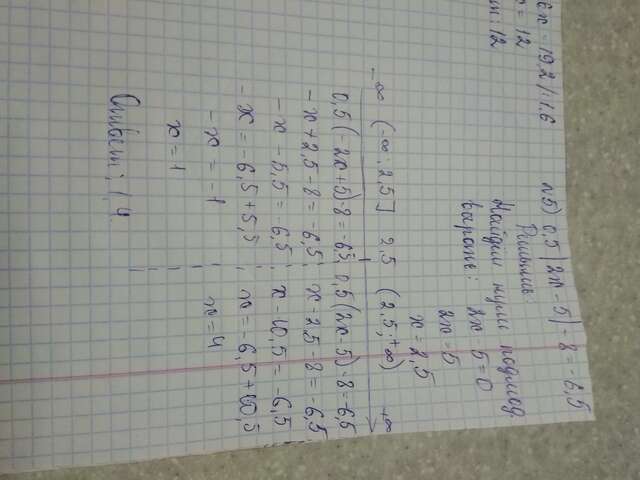 6x = 19,2 /:1.6
x = 12
12
№5) 0,5 |2x - 5| - 8 = -6,5
Решение:
Найдём нули подмод.
выраж: 2x - 5 = 0
2x = 5
x = 2,5
-∞ (-∞; 2,5] 2,5 (2,5; +∞) +∞
0,5(-2x+5)-8=-6,5 0,5(2x-5)-8=-6,5
-x+2,5-8=-6,5 x-2,5-8=-6,5
-x-5,5=-6,5 x-10,5=-6,5
-x=-6,5+5,5 x=-6,5+10,5
-x=-1 x=4
x=1
Ответ: 1,4.